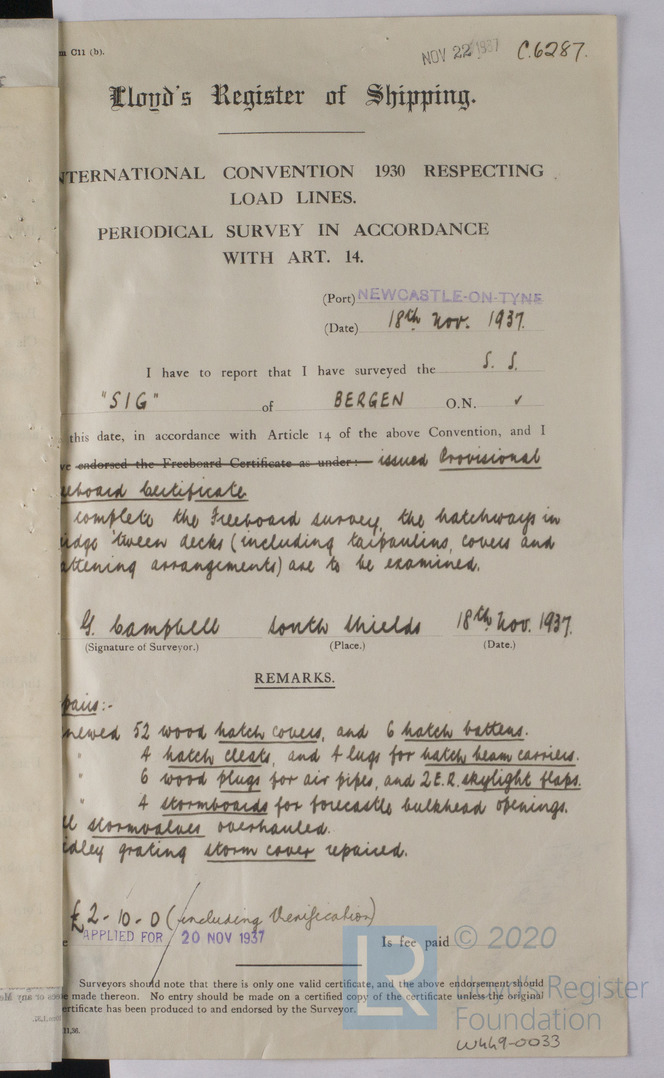 m C11 (b).
NOV 22 1937
C.6287.
Lloyd's Register of Shipping.
NTERNATIONAL CONVENTION 1930 RESPECTING
LOAD LINES.
PERIODICAL SURVEY IN ACCORDANCE
WITH ART. 14.
(Port) NEWCASTLE-ON-TYNE
(Date) 18th Nov. 1937.
I have to report that I have surveyed the S. S.
"SIG" of BERGEN O.N. ✓
this date, in accordance with Article 14 of the above Convention, and I
ve endorsed the Freeboard Certificate as under:— issued Provisional
eeboard Certificate
complete the Freeboard survey, the hatchways in
idge 'tween decks (including tarpaulins, covers and
attening arrangements) are to be examined.
G. Campbell South Shields 18th Nov. 1937.
(Signature of Surveyor.) (Place.) (Date.)
REMARKS.
pairs:-
newed 52 wood hatch covers, and 6 hatch battens.
" 4 hatch cleats, and 4 lugs for hatch beam carriers.
" 6 wood plugs for air pipes, and 2 E.R. skylight flaps.
" 4 stormboards for forecastle bulkhead openings.
ll stormvalves overhauled.
idley grating storm cover repaired.
£2-10-0 (including Verification)
e APPLIED FOR 20 NOV 1937 Is fee paid
© 2020
Surveyors should note that there is only one valid certificate, and the above endorsement should
e made thereon. No entry should be made on a certified copy of the certificate unless the original
ertificate has been produced to and endorsed by the Surveyor.
11,36.
LR
Lloyd's Register
Foundation
W449-0033